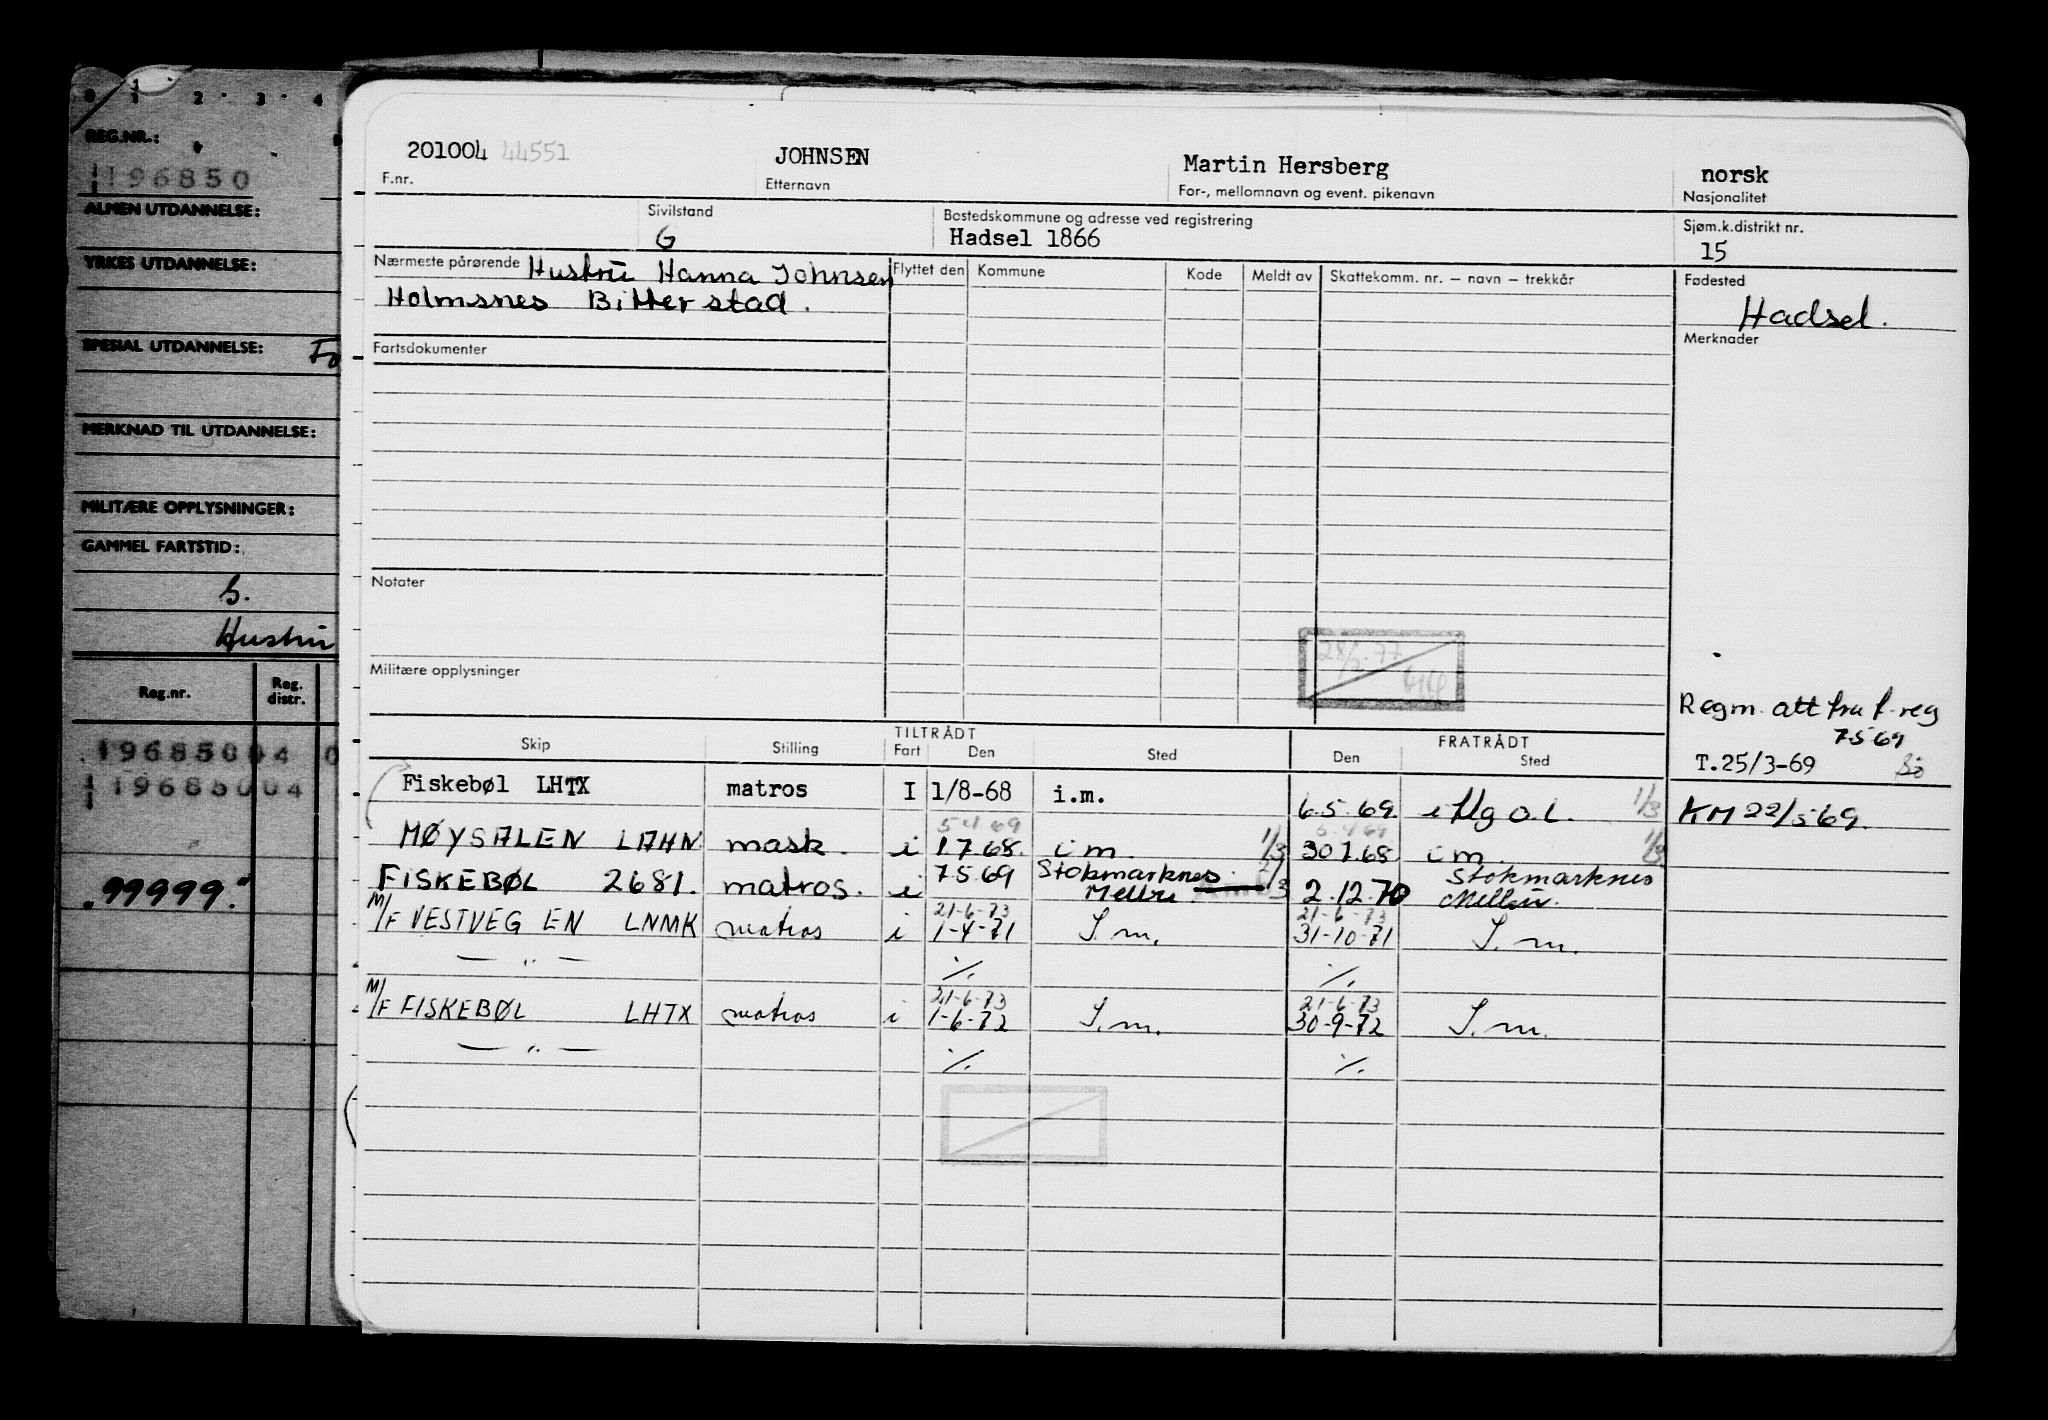 0 1 2 3 4
REG.NR.:
196850
ALMEN UTDANNELSE:
YRKES UTDANNELSE:
SPESIAL UTDANNELSE: Fo
MERKNAD TIL UTDANNELSE:
MILITÆRE OPPLYSNINGER:
GAMMEL FARTSTID:
S.
Hustru
Reg.nr. Reg. distr.
19685004 0
19685004
.99999."
201004 44551 JOHNSEN Martin Hersberg norsk
F.nr. Etternavn For-, mellomnavn og event. pikenavn Nasjonalitet
Sivilstand Bostedskommune og adresse ved registrering Sjøm.k.distrikt nr.
G Hadsel 1866 15
Nærmeste pårørende Hustru Hanna Johnsen Flyttet den Kommune Kode Meldt av Skattekomm. nr. – navn – trekkår Fødested
Holmsnes Bitterstad. Hadsel.
Fartsdokumenter Merknader
Notater
28/2-77
Militære opplysninger
Regm. att fra f. reg
7569
T.25/3-69
KM 22/5 69.
TILTRÅDT FRATRÅDT
Skip Stilling Fart Den Sted Den Sted
Fiskebøl LHTX matros I 1/8-68 i.m. 6.5.69. 1/3
MØYSALEN LAHN mask. i 1768. i m. 1/3 30768. i m. 1/3
FISKEBØL 2681. matros. i 7569 Stokmarknes 2/3 2.12.70 Stokmarknes
Melbu Melbu.
21-6-73 21-6-73
M/F VESTVEGEN LNMK matros i 1-4-71 S.m. 31-10-71 S.m.
— " — ·/. ·/.
21-6-73 21-6-73
M/F FISKEBØL LHTX matros i 1-6-72 S.m. 30-9-72 S.m.
— " — ·/. ·/.